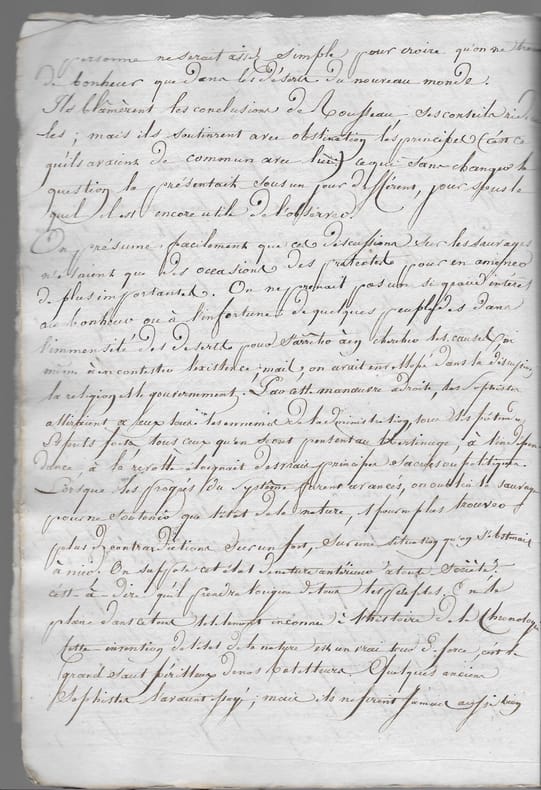 personne ne serait assé simple pour croire qu'on ne trouve
de bonheur que dans les déserts du nouveau monde.
Ils blâmèrent les conclusions de Rousseau, ses conseils
les ; mais ils soutinrent avec obstination les principes (c'est ce
qu'ils avaient de commun avec lui) ce qui sans changer la
question la présentait sous un jour différent, pour sous le
quel il est encore utile de l'observer.
On présume facilement que ces discussions sur les sauvages
ne soient que des occasions des prétextes pour en amener
de plus importantes. On ne prenait pas un si grand intérêt
au bonheur ou à l'infortune de quelques peuplades dans
l'immensité des déserts pour s'arrêter à en chercher les causes, ou
même à en contester l'existence mais on avait enveloppé dans la discussion
la religion et le gouvernement. Par cette manœuvre adroite, les sophistes
attiraient a eux tous les ennemis de l'administration, tous les
esprits forts tous ceux qu'un penchant au libertinage, à l'indépen
dance à la révolte éloignait des vrais principes sacrés ou politiques.
Lorsque les progrès du système furent avancés, on oublia le sauvage
pour ne soutenir que l'état de la nature, pour plus trouver
plus de contradictions sur un fait, sur une situation qu'on s'obstinait
à nier. On suppose cet état de nature antérieur a toute société
cest à-dire qu'il préndre l'origine de tous les peuples, En le
place dans ce tems totalement inconnu à l'histoire de la Chronologie
cette invention de l'état de la nature est un vrai tour de force, cest le
grand saut périlleux de nos bateleurs. Quelques anciens
Sophistes l'avaient ; mais ils ne firent jamais aussi bien